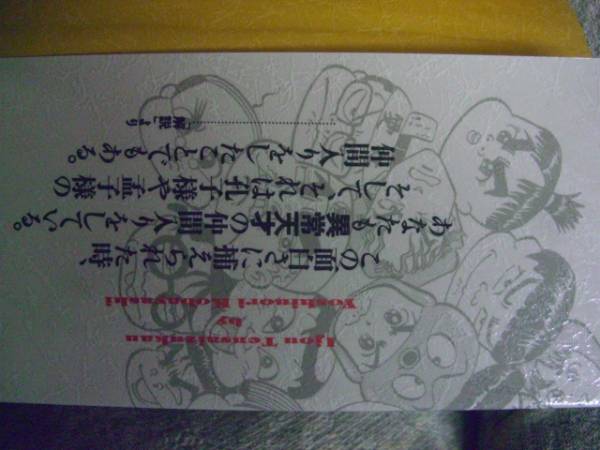 Ijou Tensaizukan
by
Yoshinori Kobayashi
この面白さに捕えられた時、
あなたも異常天才の仲間入りをしている。
そして、それは孔子様や孟子様の
仲間入りをしたことでもある。
……………「解説」より